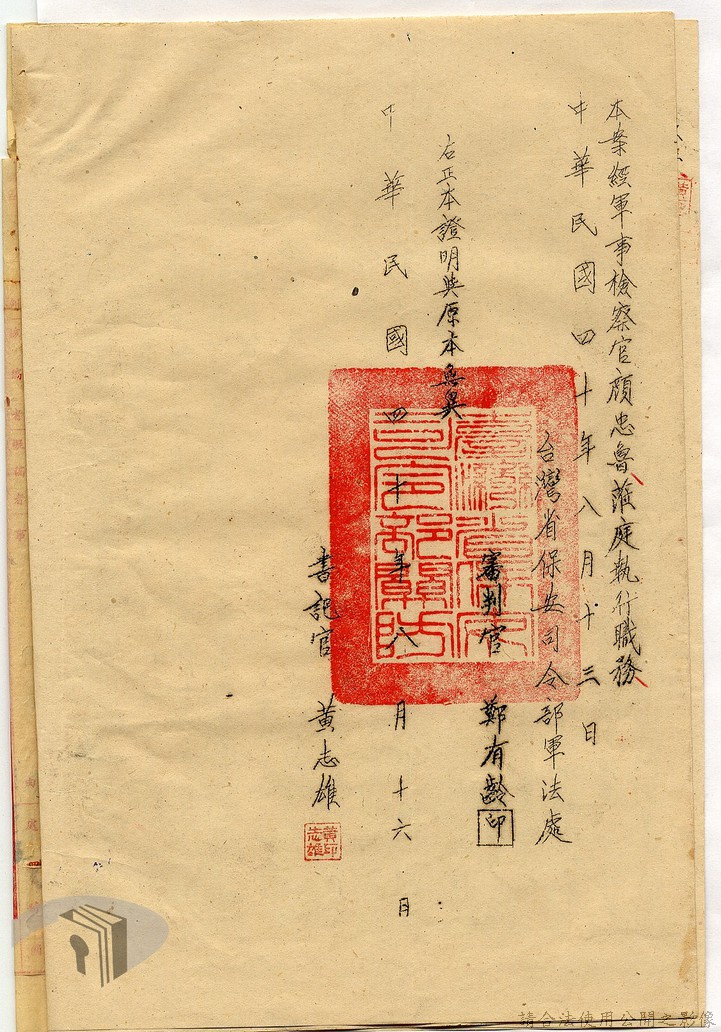 本案經軍事檢察官顏忠魯蒞庭執行職務
中華民國四十年八月十三日
台灣省保安司令部軍法處
審判官 鄭有齡 印
右正本證明與原本無異
中華民國四十年八月十六月
書記官 黃志雄
黃印志雄
請合法使用公開之影像